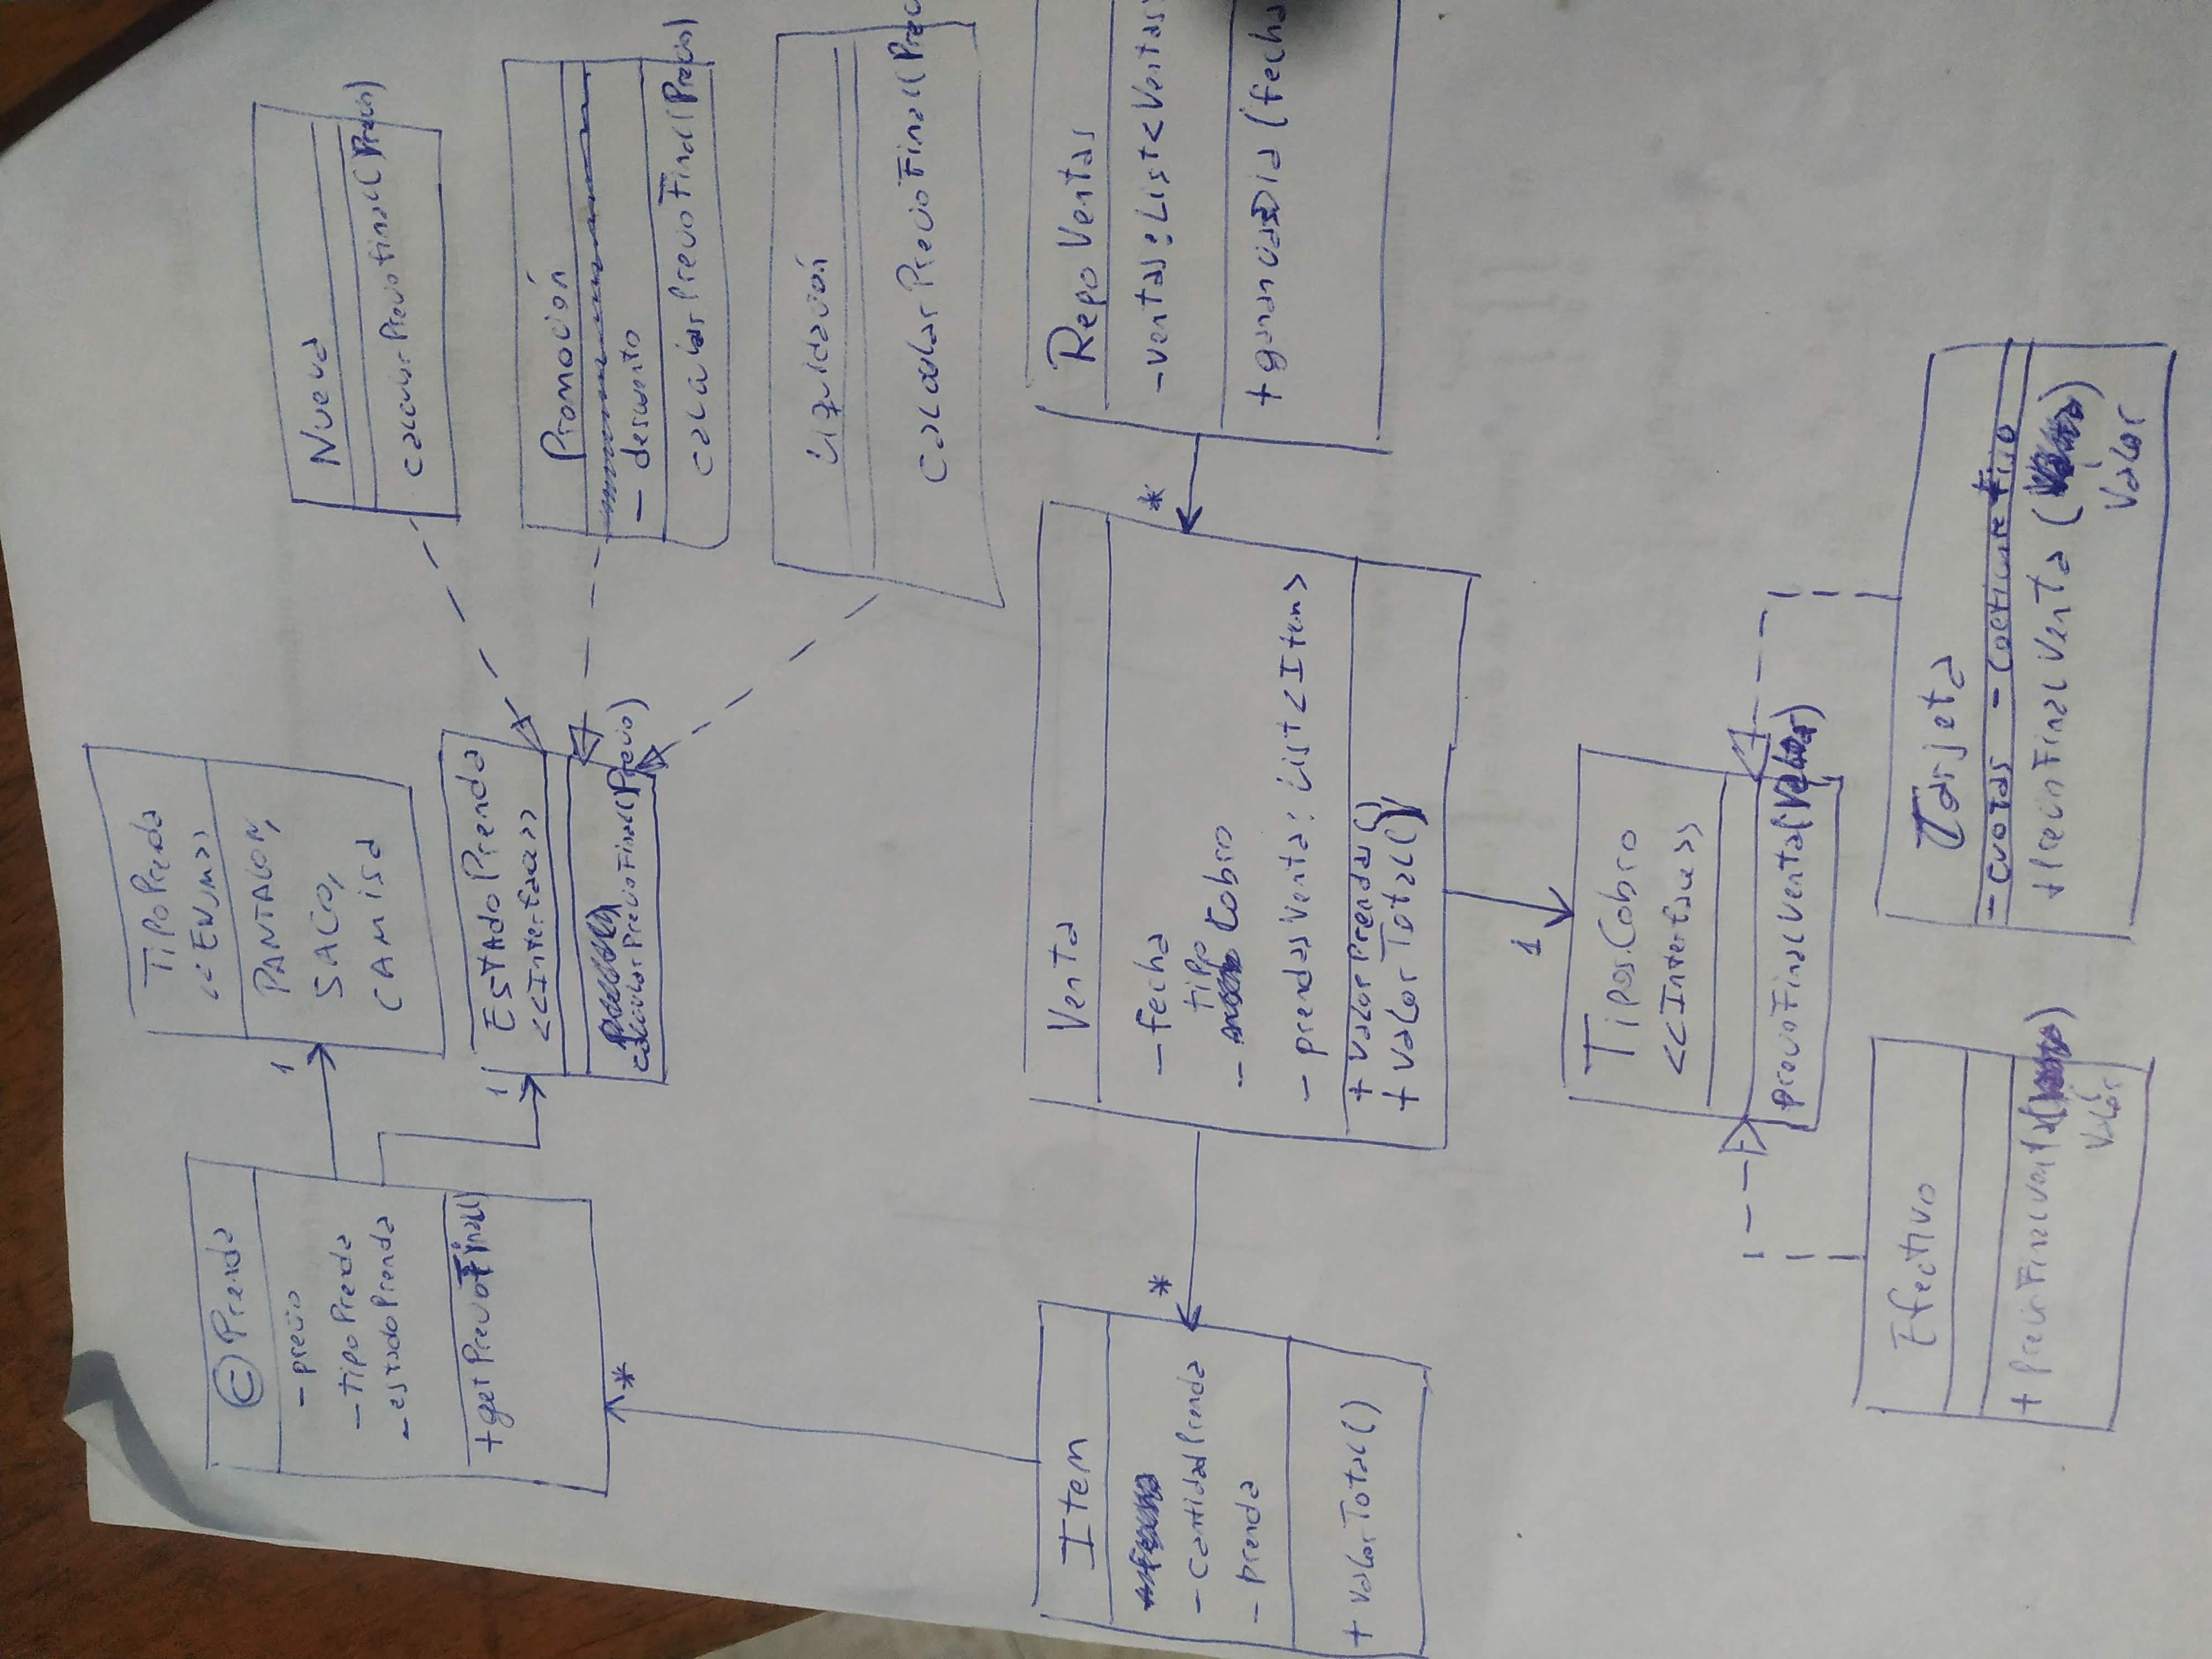 TipoPrenda
<<ENUM>>
PANTALON,
SACO,
CAMISA
C Prenda
- precio
- tipoPrenda
- estadoPrenda
+ getPrecioFinal()
1
1
EstadoPrenda
<<Interface>>
calcularPrecioFinal(Precio)
Nueva
calcularPrecioFinal(Precio)
Promoción
- descuento
calcularPrecioFinal(Precio)
Liquidación
calcularPrecioFinal(Prec
*
Item
- cantidadPrenda
- prenda
+ valorTotal()
*
Venta
- fecha
- tipo Cobro
- prendasVenta: List<Item>
+ valorPrendas()
+ valorTotal()
*
Repo Ventas
- ventas: List<Ventas
+ gananciasDia (fecha
1
Tipos.Cobro
<<Interface>>
precioFinalVenta(Valor)
Efectivo
+ precioFinalVenta( )
Valor
Tarjeta
- cuotas - coeficiente Fijo
+ PrecioFinalVenta ( )
Valor